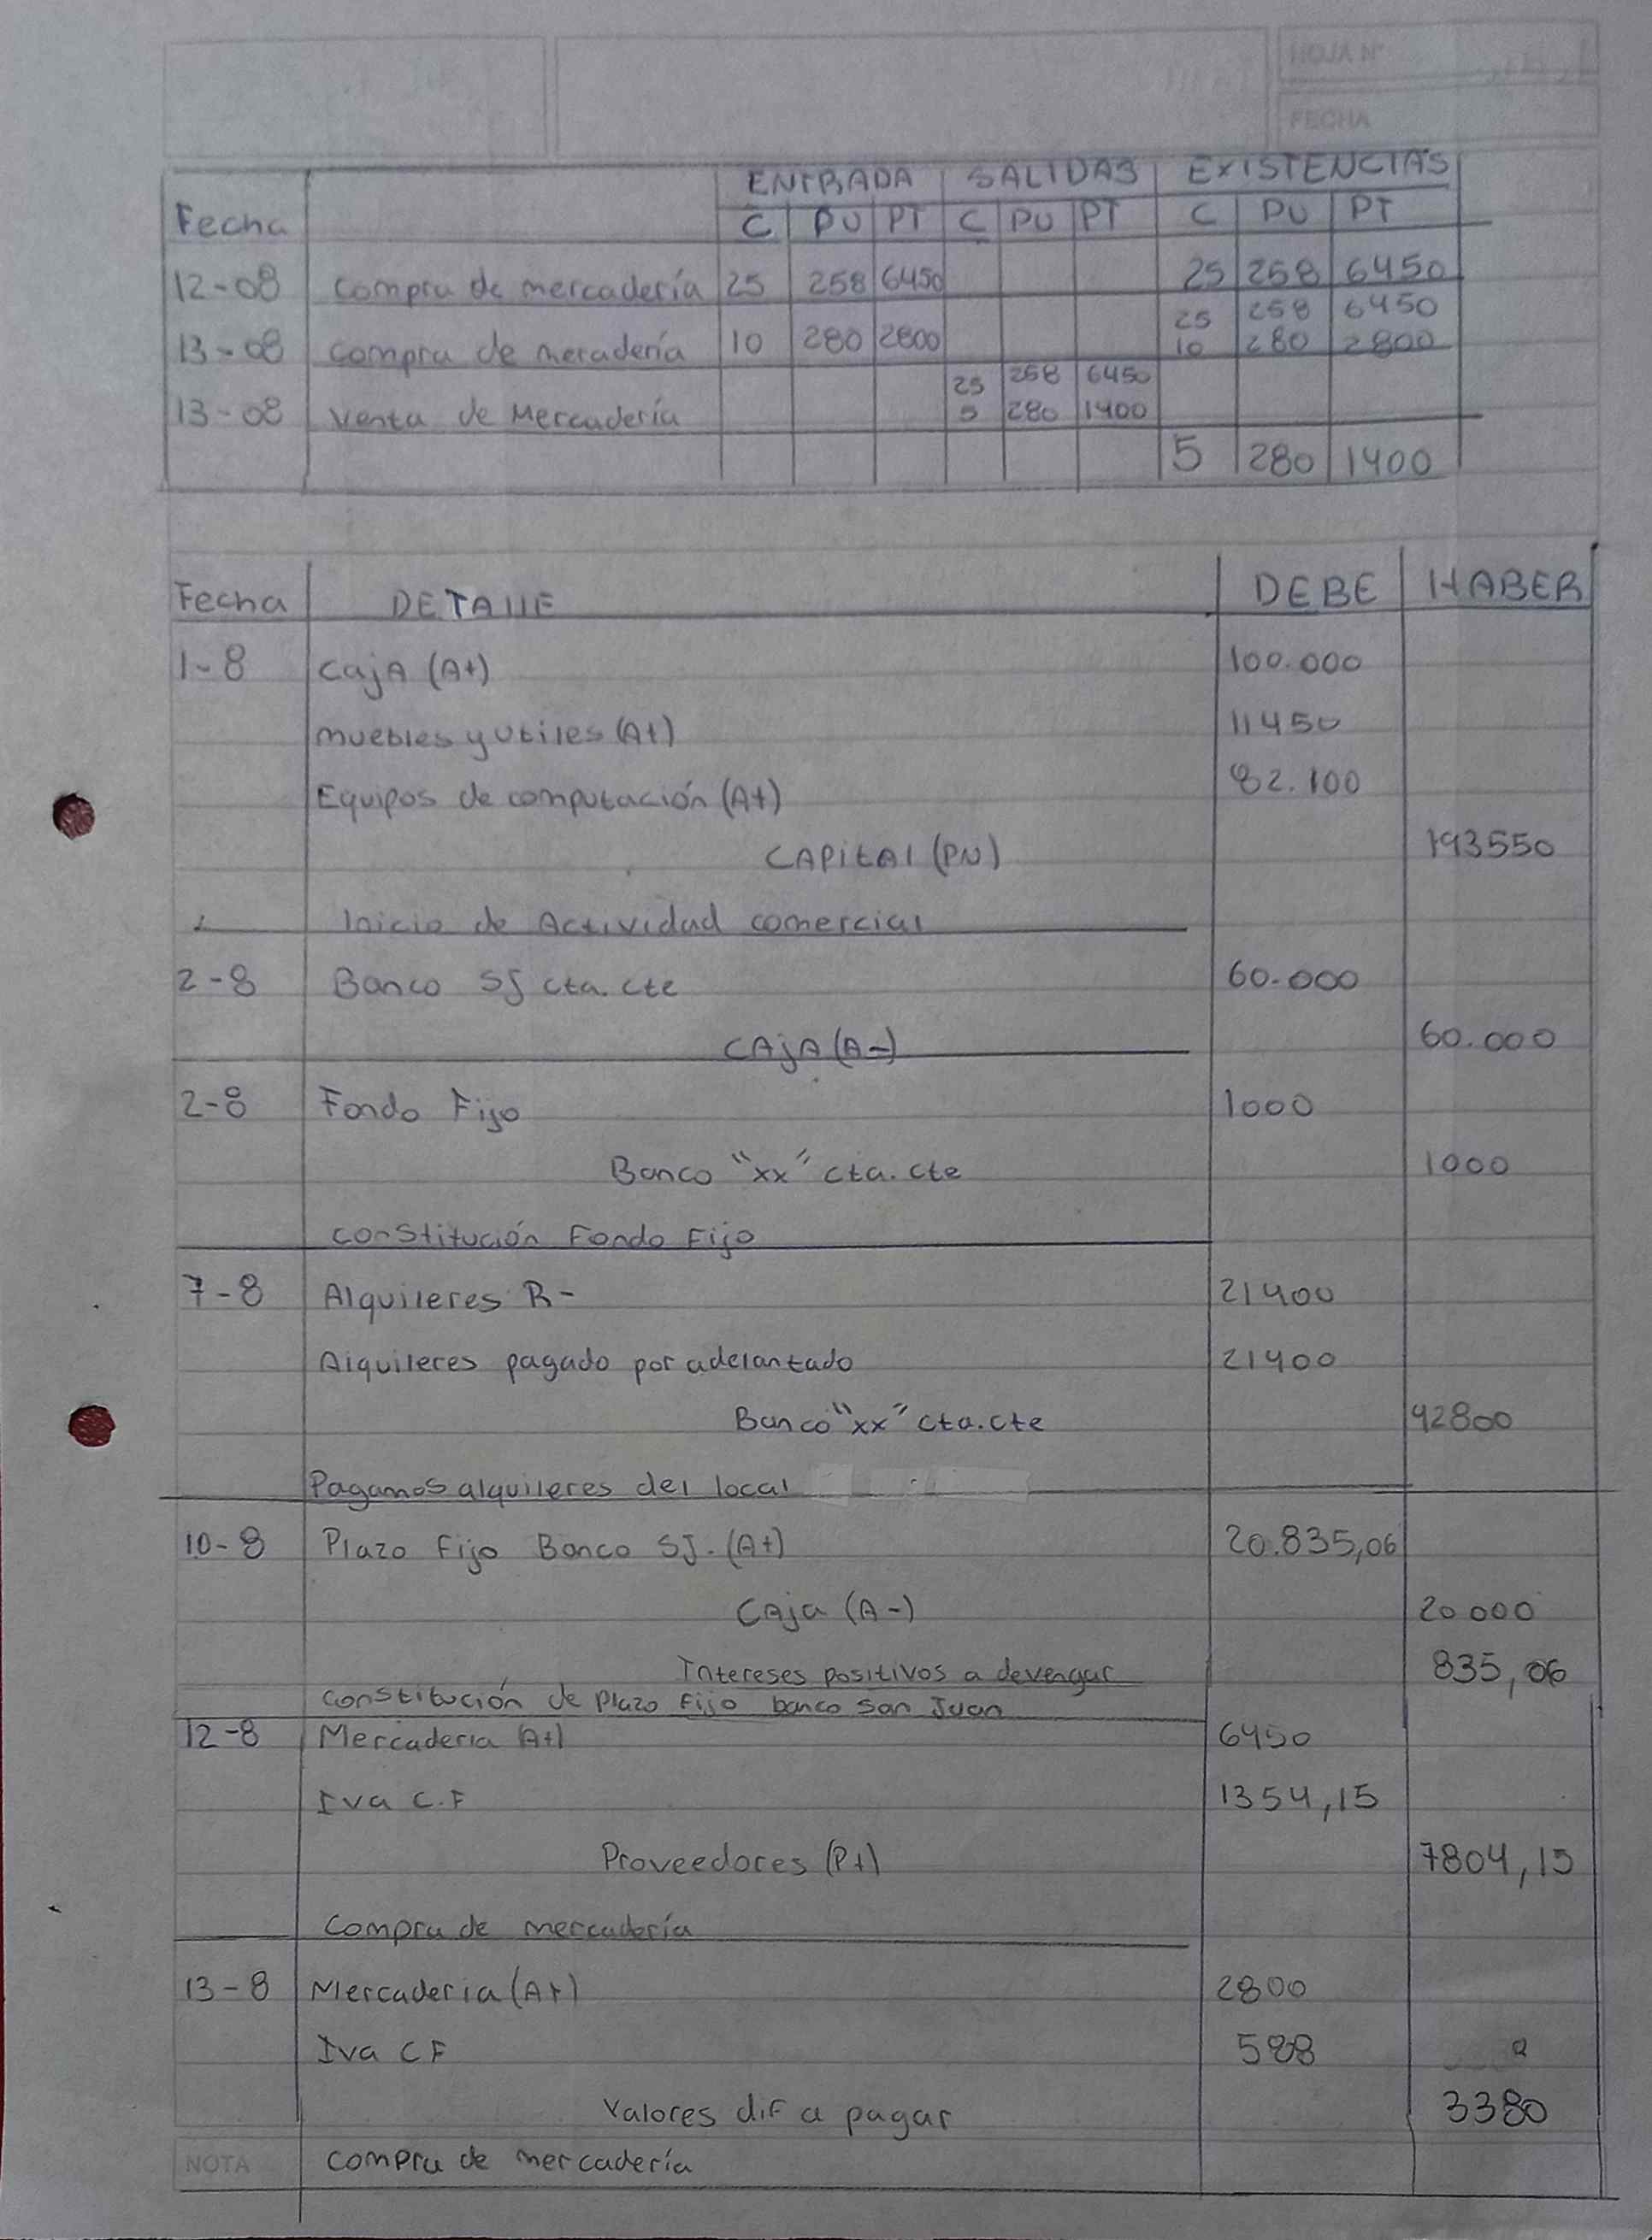 HOJA N°
FECHA
ENTRADA SALIDAS EXISTENCIAS
Fecha C PU PT C PU PT C PU PT
12-08 compra de mercadería 25 258 6450 25 258 6450
25 258 6450
13-08 compra de meradería 10 280 2800 10 280 2800
25 258 6450
13-08 venta de Mercadería 5 280 1400
5 280 1400
Fecha DETAllE DEBE HABER
1-8 CajA (A+) 100.000
muebles y utiles (A+) 11450
Equipos de computación (A+) 82.100
CAPitAl (PN) 193550
Inicio de Actividad comercial
2-8 Banco SJ cta. cte 60.000
CAjA (A-) 60.000
2-8 Fondo Fijo 1000
Banco "xx" cta. cte 1000
constitución Fondo Fijo
7-8 Alquileres R- 21400
Alquileres pagado por adelantado 21400
Banco "xx" cta.cte 42800
Pagamos alquileres del local
10-8 Plazo Fijo Banco SJ. (A+) 20.835,06
CAja (A-) 20000
Intereses positivos a devengar 835,06
constitución de Plazo Fijo banco San Juan
12-8 Mercaderia (A+) 6450
Iva C.F 1354,15
Proveedores (P+) 7804,15
Compra de mercadería
13-8 Mercaderia (A+) 2800
Iva CF 588
Valores dif a pagar 3380
NOTA compra de mercadería